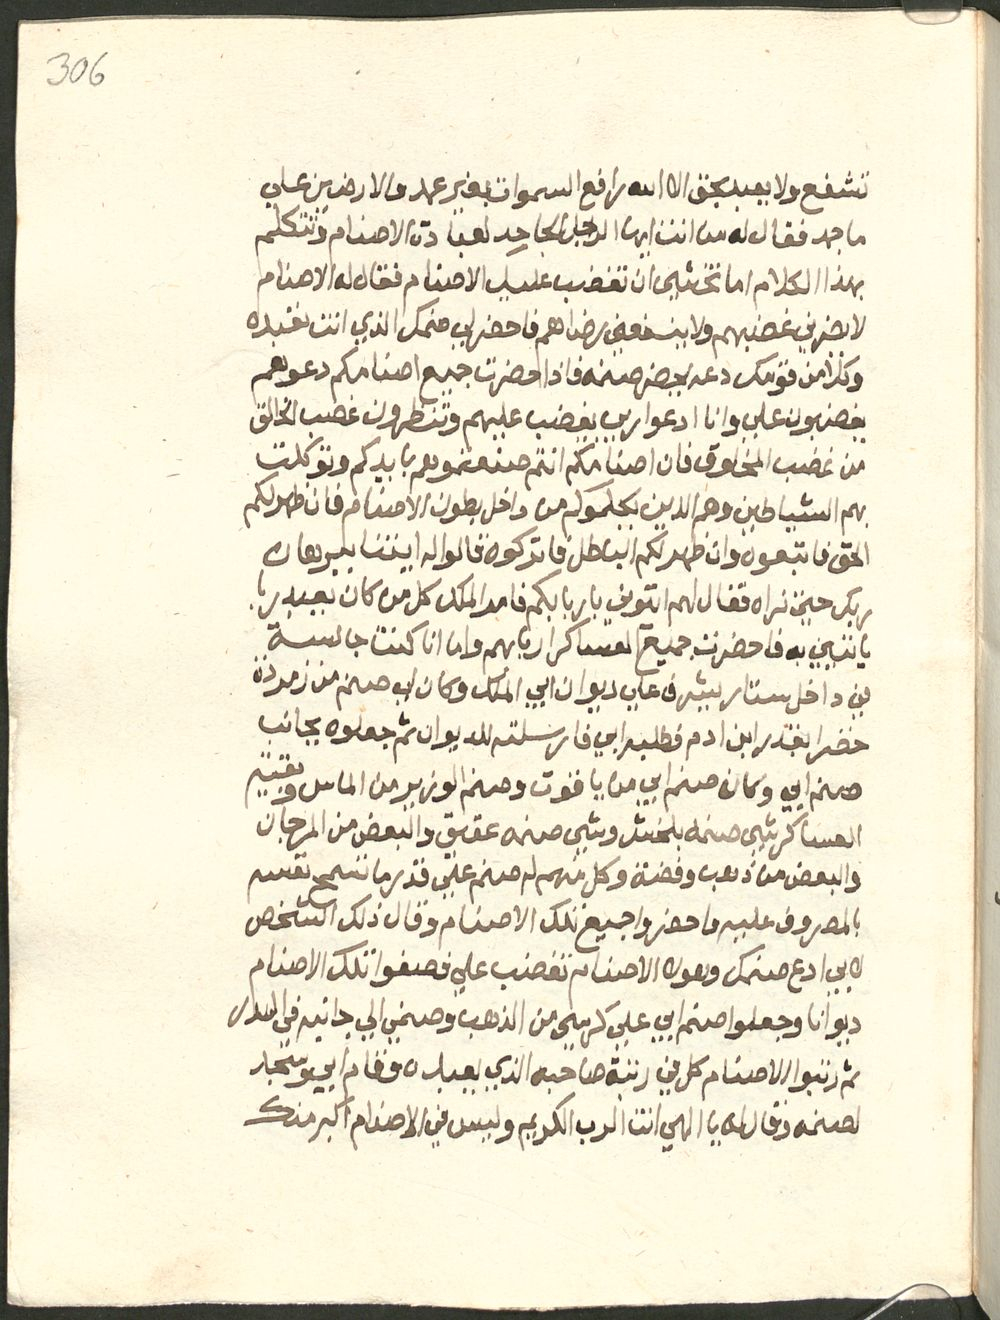 306
تشفع ولا يعبد بحق الا الله رافع السموات بغير عمد والارض من علي
ماجمد فقال له من انت ايها الرجل الجاحد لعبادة الاصنام وتتكلم
بهذا الكلام اما تخشي ان تغضب عليك الاصنام فقال له الاصنام
لا يضرني غضبهم ولا ينفعني رضاهم فاحضر لي صنمك الذي انت تعبده
وكل من قومك دعه يحضر صنمه فاذا حضرت جميع اصنامكم دعوهم
يغضبون علي وانا ادعوا ربي يغضب عليهم وتنظرون غضب الخالق
من غضب المخلوق فان اصنامكم انتم صنعتموهم بايديكم وتوكلت
بهم الشياطين وهم الذين يكلموكم من داخل بطون الاصنام فان ظهر لكم
الحق فاتبعوه وان ظهر لكم الباطل فاتركوه قالوا له ايتنا ببرهان
ربك حتي نراه فقال لهم ايتوني باربابكم فامر الملك كل من كان يعبد ربا
ياتيني به فاحضرت جميع العساكر اربابهم واما انا كنت جالسة
في داخل ستار يشرف علي ديوان ابي الملك وكان لي صنم من زمردة
خضرا بقدر ابن ادم فطلبه ابي فارسلته للديوان ثم جعلوه بجانب
صنم ابي وكان صنم ابي من ياقوت وصنم الوزير من الماس وبقية
العساكر شي صنمه بلخش وشي صنمه عقيق والبعض من المرجان
والبعض من ذهب وفضة وكل منهم له صنم علي قدر ما تسمح نفسه
بالمصروف عليه فاحضروا جميع تلك الاصنام وقال ذلك الشخص
لابي ادع صنمك وهولاء الاصنام تغضب علي فصفوا تلك الاصنام
ديوانا وجعلوا صنم ابي علي كرسي من الذهب وصنمي الي جانبه في الصدر
ثم رتبوا الاصنام كل في رتبة صاحبه الذي يعبده وقام ابي وسجد
لصنمه وقال له يا الهي انت الرب الكريم وليس في الاصنام اكبر منك